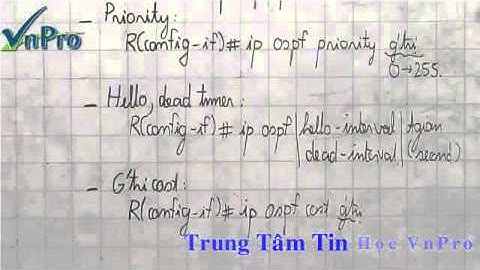 VnPro
- Priority:
R(config-if)# ip ospf priority gtrị
0→255.
- Hello, dead timer:
R(config-if)# ip ospf | hello-interval | tgian
dead-interval | (second)
- Gtrị cost:
R(config-if)# ip ospf cost gtrị
Trung Tâm Tin Học VnPro